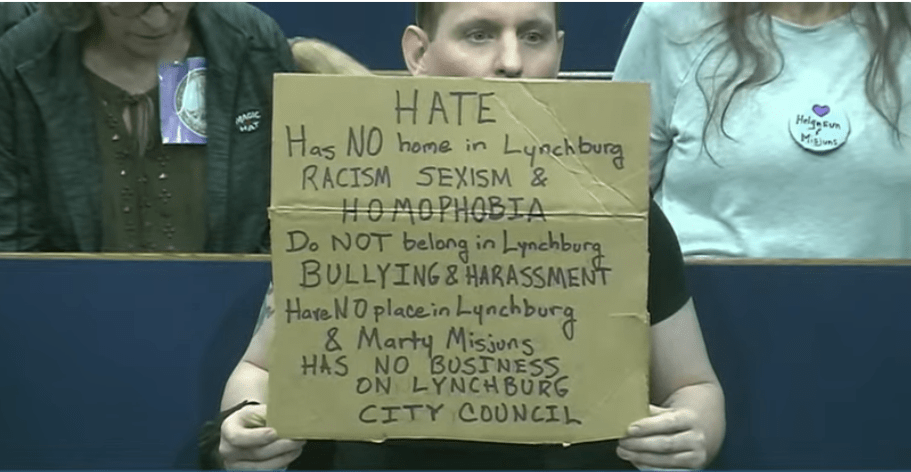 MAGIC
HAT
HATE
Has NO home in Lynchburg
RACISM SEXISM &
HOMOPHOBIA
Do NOT belong in Lynchburg
BULLYING & HARASSMENT
Have NO place in Lynchburg
& Marty Misjuns
HAS NO BUSINESS
ON LYNCHBURG
CITY COUNCIL
Misjuns